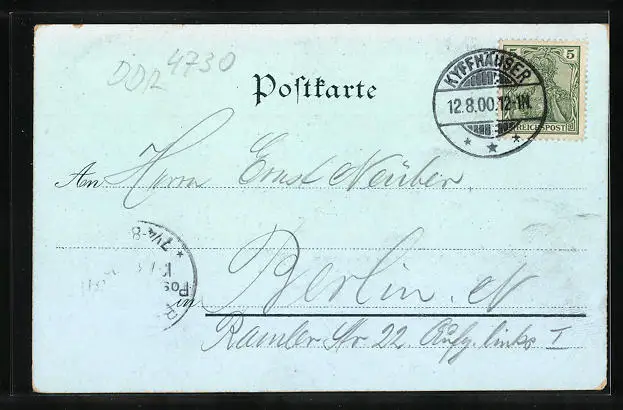 DDR 4730
Postkarte
KYFFHÄUSER
12.8.00.12-1N.
5
REICHSPOST
An Herrn Ernst Neuber
in Berlin. N
Ramler Str 22. Aufg. links I
7¼-8